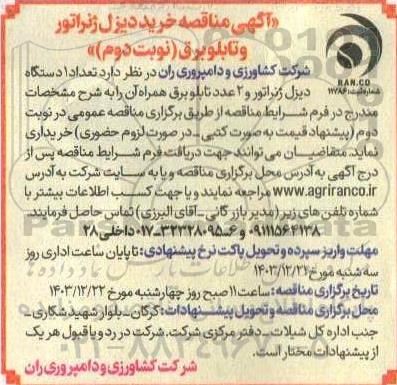 «آگهی مناقصه خرید دیزل ژنراتور
و تابلو برق (نوبت دوم)»
RAN.CO
شماره ثبت: ۱۱۷۸۶
شرکت کشاورزی و دامپروری ران در نظر دارد تعداد ۱ دستگاه
دیزل ژنراتور و ۲ عدد تابلو برق همراه آن را به شرح مشخصات
مندرج در فرم شرایط مناقصه از طریق برگزاری مناقصه عمومی در نوبت
دوم (پیشنهاد قیمت به صورت کتبی - در صورت لزوم حضوری) خریداری
نماید. متقاضیان می توانند جهت دریافت فرم شرایط مناقصه پس از
درج آگهی به آدرس محل برگزاری مناقصه و یا به سایت شرکت به آدرس
www.agriranco.ir مراجعه نمایند و یا جهت کسب اطلاعات بیشتر با
شماره تلفن های زیر (مدیر بازرگانی - آقای البرزی) تماس حاصل فرمایند.
۰۹۱۱۱۵۶۴۱۳۸ و ۸-۳۲۳۲۸۰۹۵-۰۱۷ داخلی ۲۸
مهلت واریز سپرده و تحویل پاکت نرخ پیشنهادی: تا پایان ساعت اداری روز
سه شنبه مورخ ۱۴۰۳/۱۲/۲۱
تاریخ برگزاری مناقصه: ساعت ۱۱ صبح روز چهارشنبه مورخ ۱۴۰۳/۱۲/۲۲
محل برگزاری مناقصه و تحویل پیشنهادات: گرگان - بلوار شهید شکاری -
جنب اداره کل شیلات - دفتر مرکزی شرکت. شرکت در رد و یا قبول هر یک
از پیشنهادات مختار است.
شرکت کشاورزی و دامپروری ران